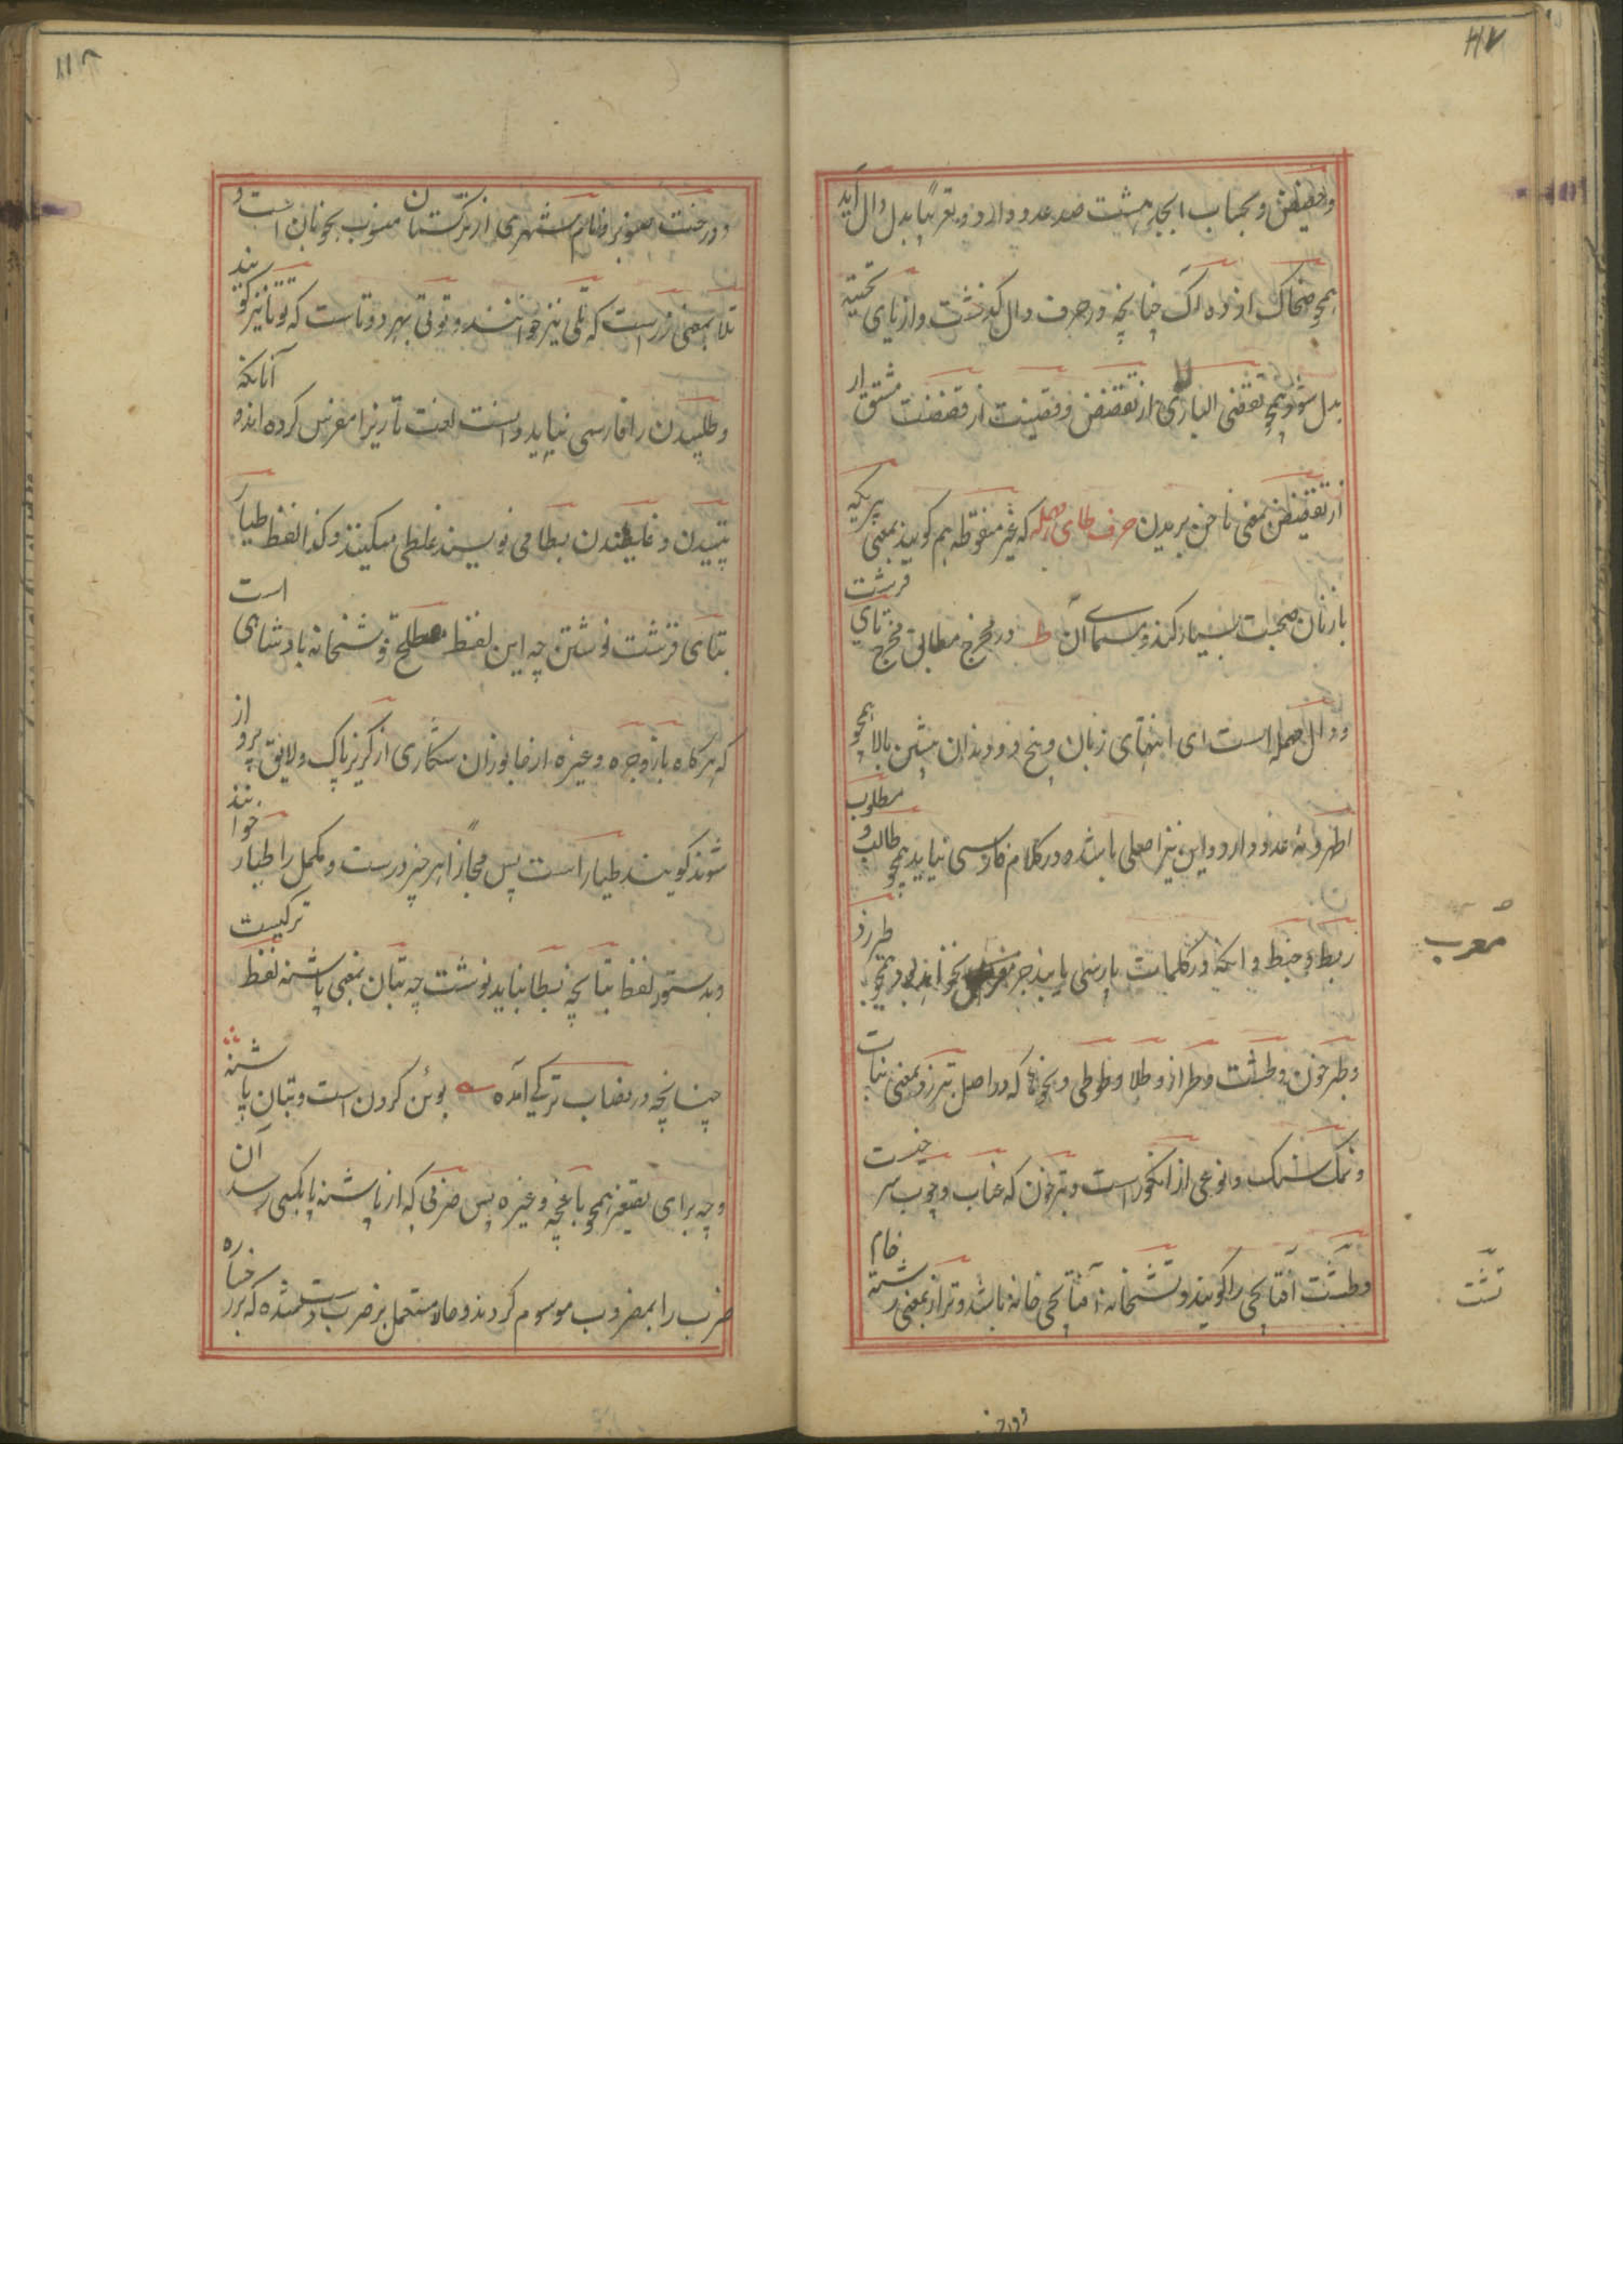 ۱۱۷
و حضیض و بحساب ابجد هشت صد عدد دارد و تعریبا بدل دال آید
همچو ضحاک از ده آک چنانچه در حرف دال گذشت و از یای تحتیه
بدل شود همچو تقضی البازی از تقضض و قضیت از قضضت مشتق از
تقضیض بمعنی ناخن بریدن حرف طای مهمله که غیر منقوطه هم گویند بمعنی پیریکه
بازنان صحبت بسیار کند و مسمای آن ط در مخرج مطابق مخرج تای قرشت
و دال مهمله است ای انتهای زبان و بیخ دو دندان پیشین بالا همچو
اطهر و نه عدد دارد و این نیز اصلی باشد و در کلام فارسی نیاید همچو طالب و مطلوب
ربط و ضبط و آنکه در کلمات پارسی یابند جز معرب نخوانند بود همچو طبرزد
معرب
و طبرخون و طشت و طراز و طلا و طوطی و نحوها که در اصل تبرزد بمعنی نبات
و نمک سنگ و نوعی از انگور است و تبرخون که عناب و چوب سرخ است
و طشت آفتابچی را گویند و تشتخانه آفتابچی خانه باشد و تراز بمعنی رشته خام
تشت
و درخت
۱۱۸
و درخت صنوبر و نام شهری از ترکستان منسوب بخوبان است و
تلا بمعنی زر است که تلی نیز خوانند و توتی بهر دو تا است که توتا نیز گویند
و طلیدن را فارسی نیاید و است لغت تازیرا مفرس کرده اند و آنانکه
تپیدن و غلتیدن بطا می نویسند غلطی میکنند و کذا لفظ طیار
بتای قرشت نوشتن چه این لفظ مصطلح قوشخانه بادشاهی است
که هرگاه باز و جره و غیره از جانوران شکاری از کریز پاک و لایق پرواز
شوند گویند طیار است پس مجازا هر چیز درست و مکمل را طیار خوانند
و بدستور لفظ تپانچه بطا نباید نوشت چه تپان بمعنی پاشنه لفظ ترکیست
چنانچه در نصاب ترکی آمده بوئن گردن است و تپان پاشنه
و چه برای تصغیر همچو باغچه و غیره پس ضربی که از پاشنه پا بکسی رسد آن
ضرب را بمضروب موسوم کردند و حالا مستعمل بر ضرب دست شده که بر رخساره